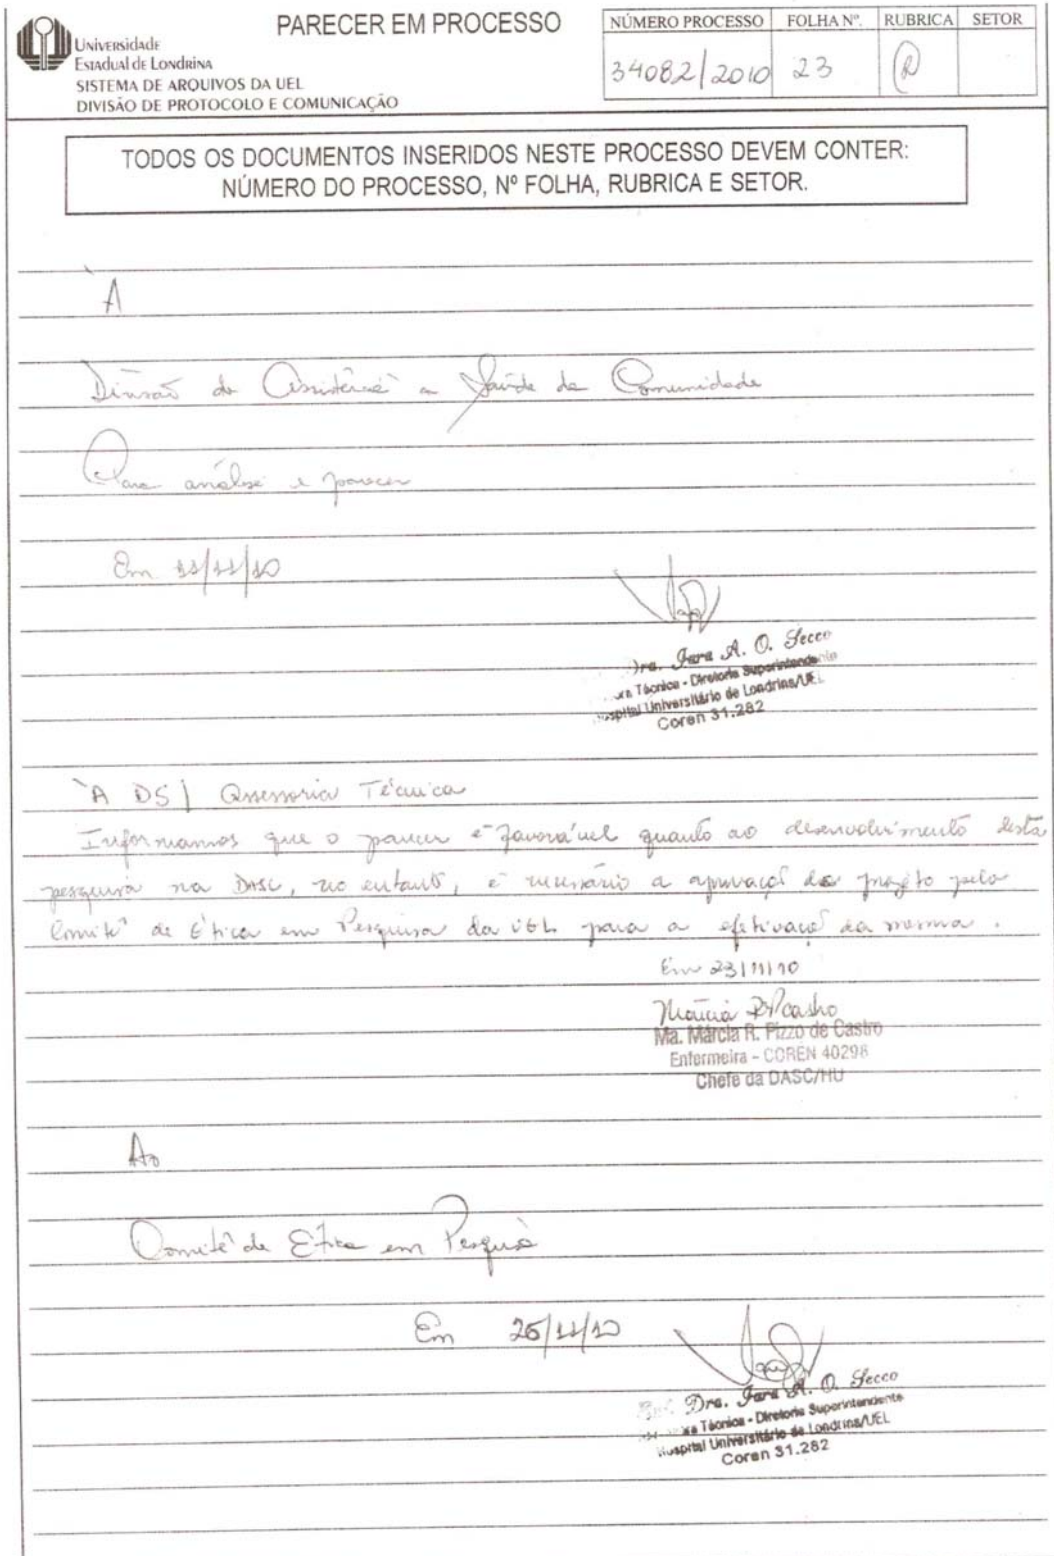 Universidade
Estadual de Londrina
SISTEMA DE ARQUIVOS DA UEL
DIVISÃO DE PROTOCOLO E COMUNICAÇÃO
PARECER EM PROCESSO
NÚMERO PROCESSO FOLHA Nº. RUBRICA SETOR
34082/2010 23
TODOS OS DOCUMENTOS INSERIDOS NESTE PROCESSO DEVEM CONTER:
NÚMERO DO PROCESSO, Nº FOLHA, RUBRICA E SETOR.
À
Divisão de Assistência a Saúde da Comunidade
Para análise e parecer
Em 11/11/10
Dra. Jara A. O. Secco
Técnica - Diretoria Superintendente
Hospital Universitário de Londrina/UEL
Coren 31.282
À DS / Assessoria Técnica
Informamos que o parecer é favorável quanto ao desenvolvimento desta
pesquisa na DASC, no entanto, é necessário a aprovação do projeto pelo
Comitê de Ética em Pesquisa da UEL para a efetivação da mesma.
Em 23/11/10
Márcia RPCastro
Ma. Márcia R. Pizzo de Castro
Enfermeira - COREN 40298
Chefe da DASC/HU
Ao
Comitê de Ética em Pesquisa
Em 26/11/10
Dra. Jara A. O. Secco
Técnica - Diretoria Superintendente
Hospital Universitário de Londrina/UEL
Coren 31.282